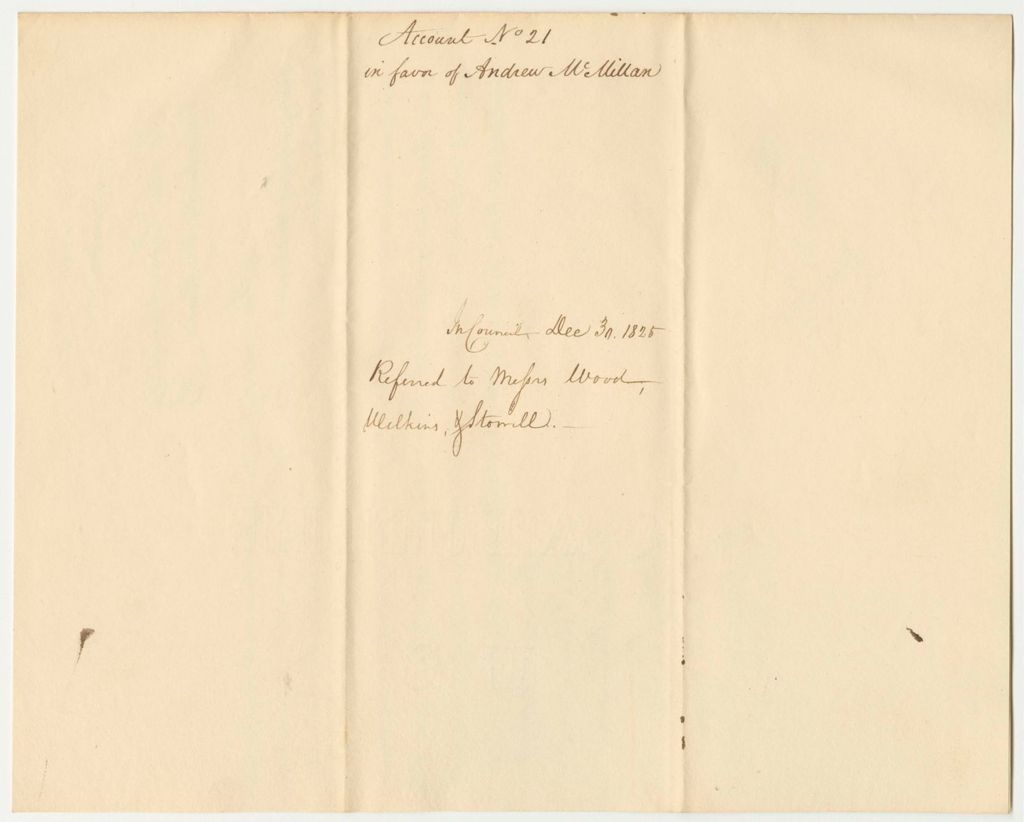 Account No 21
in favor of Andrew McMillan
In Council, Dec 30. 1825
Referred to Messrs Wood,
Wilkins, & Stowell. —